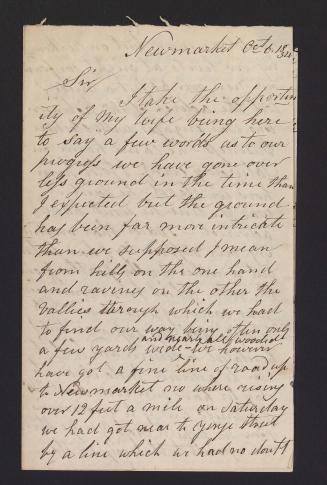 Newmarket Oct 6. 184
Sir
I take the opportun
ity of my wife being here
to say a few words as to our
progress we have gone over
less ground in the time than
I expected but the ground
has been far more intricate
than we supposed I mean
from hills on the one hand
and ravines on the other the
Vallies through which we had
to find our way being often only
and nearly all wooded
a few yards wide - we however
have got a fine line of road up
to Newmarket no where rising
over 12 feet a mile on Saturday
we had got near to Yonge Street
by a line which we had no doubt